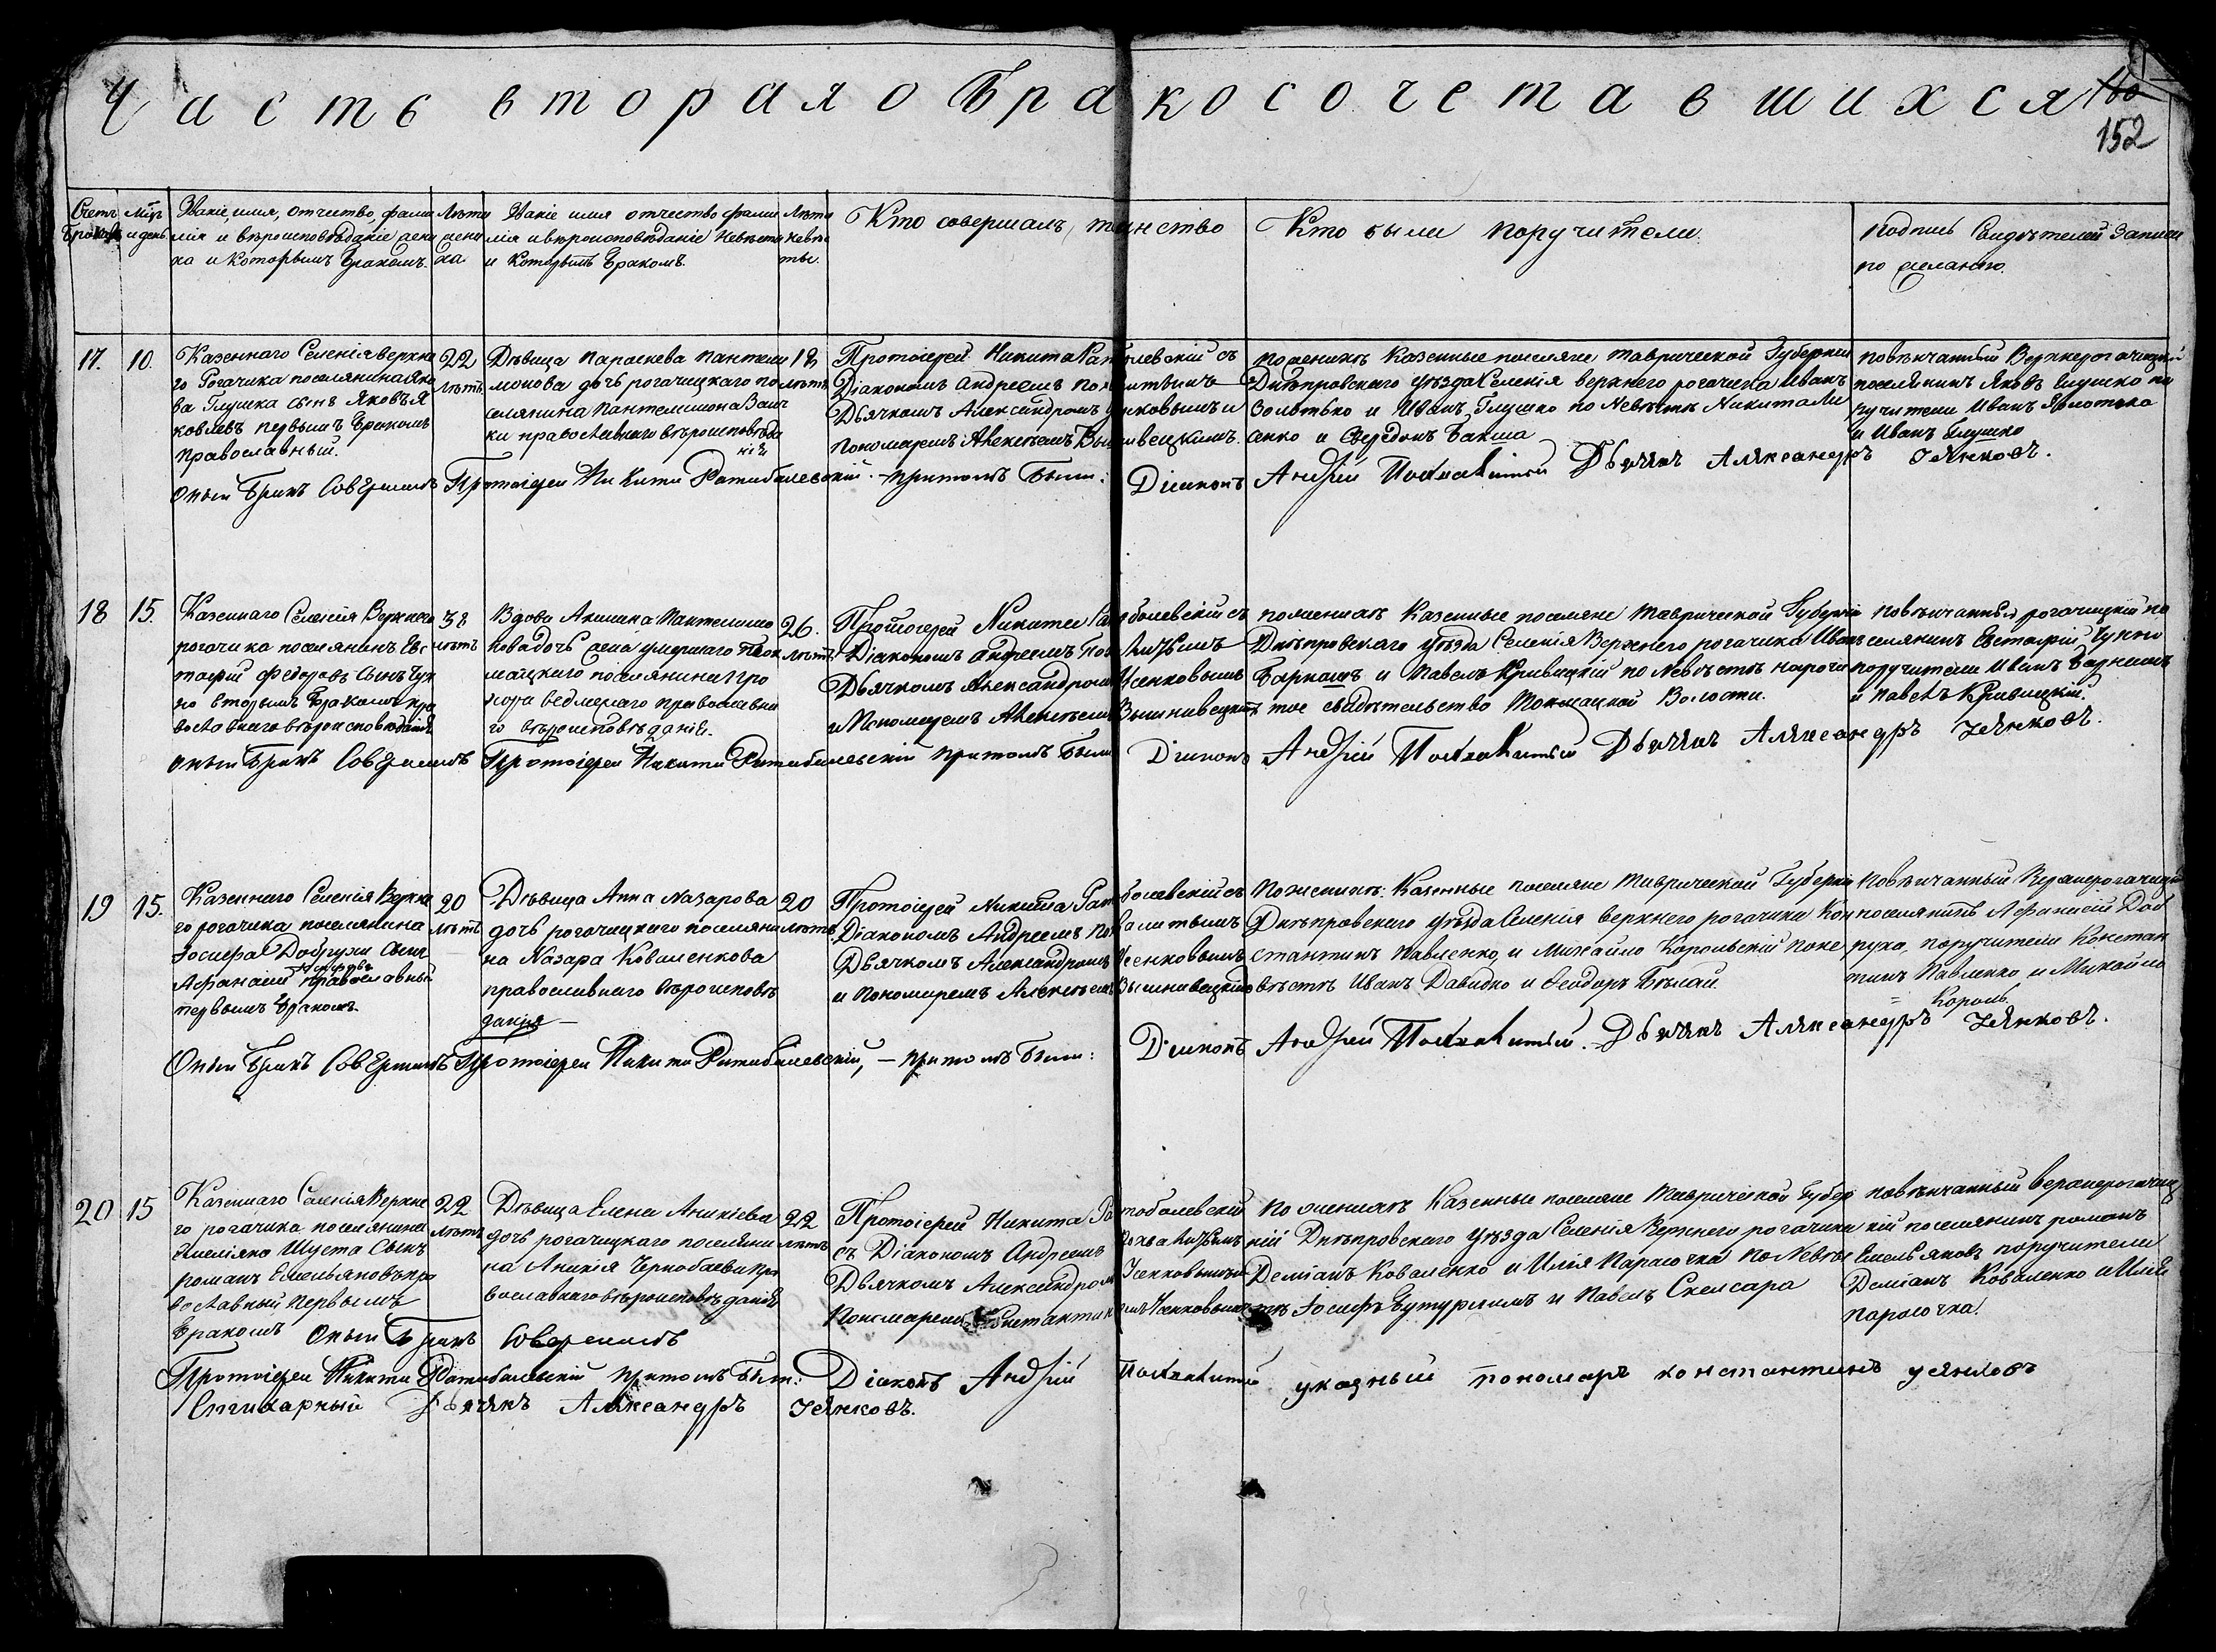 Часть вторая о Бракосочетавшихся
152
Счетъ
Браковъ
Мцъ
и день
Званіе, имя, отчество, фами
лія и вѣроисповѣданіе жени
ха и которымъ бракомъ.
Лѣта
жени
ха.
Званіе имя отчество фами
лія и вѣроисповѣданіе невѣсты
и которымъ бракомъ.
Лѣта
невѣс
ты.
Кто совершалъ таинство
Кто были поручители
Подпись Свидѣтелей Записи
по желанію.
17.
10.
Казеннаго Селенія верхня
го Рогачика поселянина Яко
ва Глушка сынъ Яковъ Я
ковлевъ первымъ бракомъ
православный.
22
лѣтъ
Дѣвица Параскева Пантели
монова дочь рогачицкаго по
селянина Пантелимона Заич
ки православнаго вѣроисповѣда
нія
18
лѣтъ
Протоіерей Никита Ратобалевскій съ
Діакономъ Андреемъ Похвалитымъ
Дьячкомъ Александромъ Усенковымъ и
Пономаремъ Алексѣемъ Вышнивецкимъ.
по женихѣ казенные поселяне Таврической Губерніи
Днѣпровскаго уѣзда Селенія верхнего рогачика Иванъ
Золотько и Иванъ Глушко по Невѣстѣ Никита Ли
сенко и Свередонъ Бакша
повѣнчанный Верхнерогачицкій
поселянинъ Яковъ Глушко по
ручители Иванъ Золотько
и Иванъ Глушко
Оный Бракъ Совершилъ Протоіерей Никита Ратобалевскій. - притомъ Были: Діаконъ Андрій Похвалитый Дьячокъ Александръ Усѣнковъ.
18
15.
Казеннаго Селенія Верхнего
рогачика поселянинъ Евс
тафій Федоровъ сынъ Чуп
но вторымъ бракомъ пра
вославнаго вѣроисповѣданія
38
лѣтъ
Вдова Акилина Пантелимо
нова дочь жена умершаго Ток
мацкаго поселянина Про
хора Ведмедяго православна
го вѣроисповѣданія.
26.
лѣтъ.
Протоіерей Никита Ратоболевскій съ
Діакономъ Андреемъ Похвалитымъ
Дьячкомъ Александромъ Усенковымъ
и Пономаремъ Алексѣемъ Вышнивецкимъ
по женихѣ Казенные поселяне Таврической Губерніи
Днѣпровскаго уѣзда Селенія Верхнего рогачика Иванъ
Баркашъ и Павелъ Кривицкій по Невѣстѣ нарочи
тое свидѣтельство Токмацкой Волости.
повѣнчанный рогачицкій по
селянинъ Евстафій Чупно
поручители Иванъ Баркашъ
и Павелъ Кривицкій.
Оный Бракъ Совершилъ Протоіерей Никита Ратобалевскій притомъ Были Діаконъ Андрій Похвалитый Дьячокъ Александръ Усѣнковъ.
19
15.
Казеннаго Селенія Верхня
го рогачика поселянина
Іосифа Добрухи сынъ
Афанасій Іосифовъ православный
первымъ бракомъ.
20
лѣтъ
Дѣвица Анна Назарова
дочь рогачицкаго поселяни
на Назара Коваленкова
православнаго вѣроисповѣ
данія
20
лѣтъ.
Протоіерей Никита Ратоболевскій съ
Діакономъ Андреемъ Похвалитымъ
Дьячкомъ Александромъ Усенковымъ
и Пономаремъ Алексѣемъ Вышнивецкимъ
По женихѣ: Казенные поселяне Таврической Губерніи
Днѣпровскаго уѣзда Селенія верхнего рогачика Кон
стантинъ Павленко, и Михайло Корольскій По не
вѣстѣ Иванъ Давидко и Феодоръ Бѣлай
Повѣнчанный Верхнерогачицкій
поселянинъ Афанасій Доб
руха, поручители Констан
тинъ Павленко, и Михайло
= Король.
Оный Бракъ Совершилъ Протоіерей Никита Ратобалевскій, - притомъ Были: Діаконъ Андрій Похвалитый. Дьячокъ Александръ Усѣнковъ.
20
15
Казеннаго Селенія Верхне
го рогачика поселянина
Емеліяна Шуста сынъ
романъ Емельяновъ пра
вославный первымъ
бракомъ
22
лѣтъ
Дѣвица Елена Аникіева
дочь рогачицкаго поселяни
на Аникія Чернобаева пра
вославнаго вѣроисповѣданія
22
лѣтъ
Протоіерей Никита Ратобалевскій
съ Діакономъ Андреемъ Похвалитымъ
Дьячкомъ Александромъ Усенковымъ и
Пономаремъ Константиномъ Усенковымъ
По женихѣ Казенные поселяне Таврической Губер
ніи Днѣпровскаго уѣзда Селенія Верхнего рогачика
Деміанъ Коваленко и Илія Парасочка По Невѣс
тѣ Іосифъ Бутурлимъ и Павелъ Слюсара
повѣнчанный верхнерогачиц
кій поселянинъ романъ
Емельяновъ поручители
Деміанъ Коваленко и Илія
парасочка.
Оный Бракъ Совершилъ
Протоіерей Никита Ратобалевскій притомъ Были: Діаконъ Андрій Похвалитый указный пономарь константинъ усѣнковъ
Стихарный Дьячокъ Александръ Усѣнковъ.